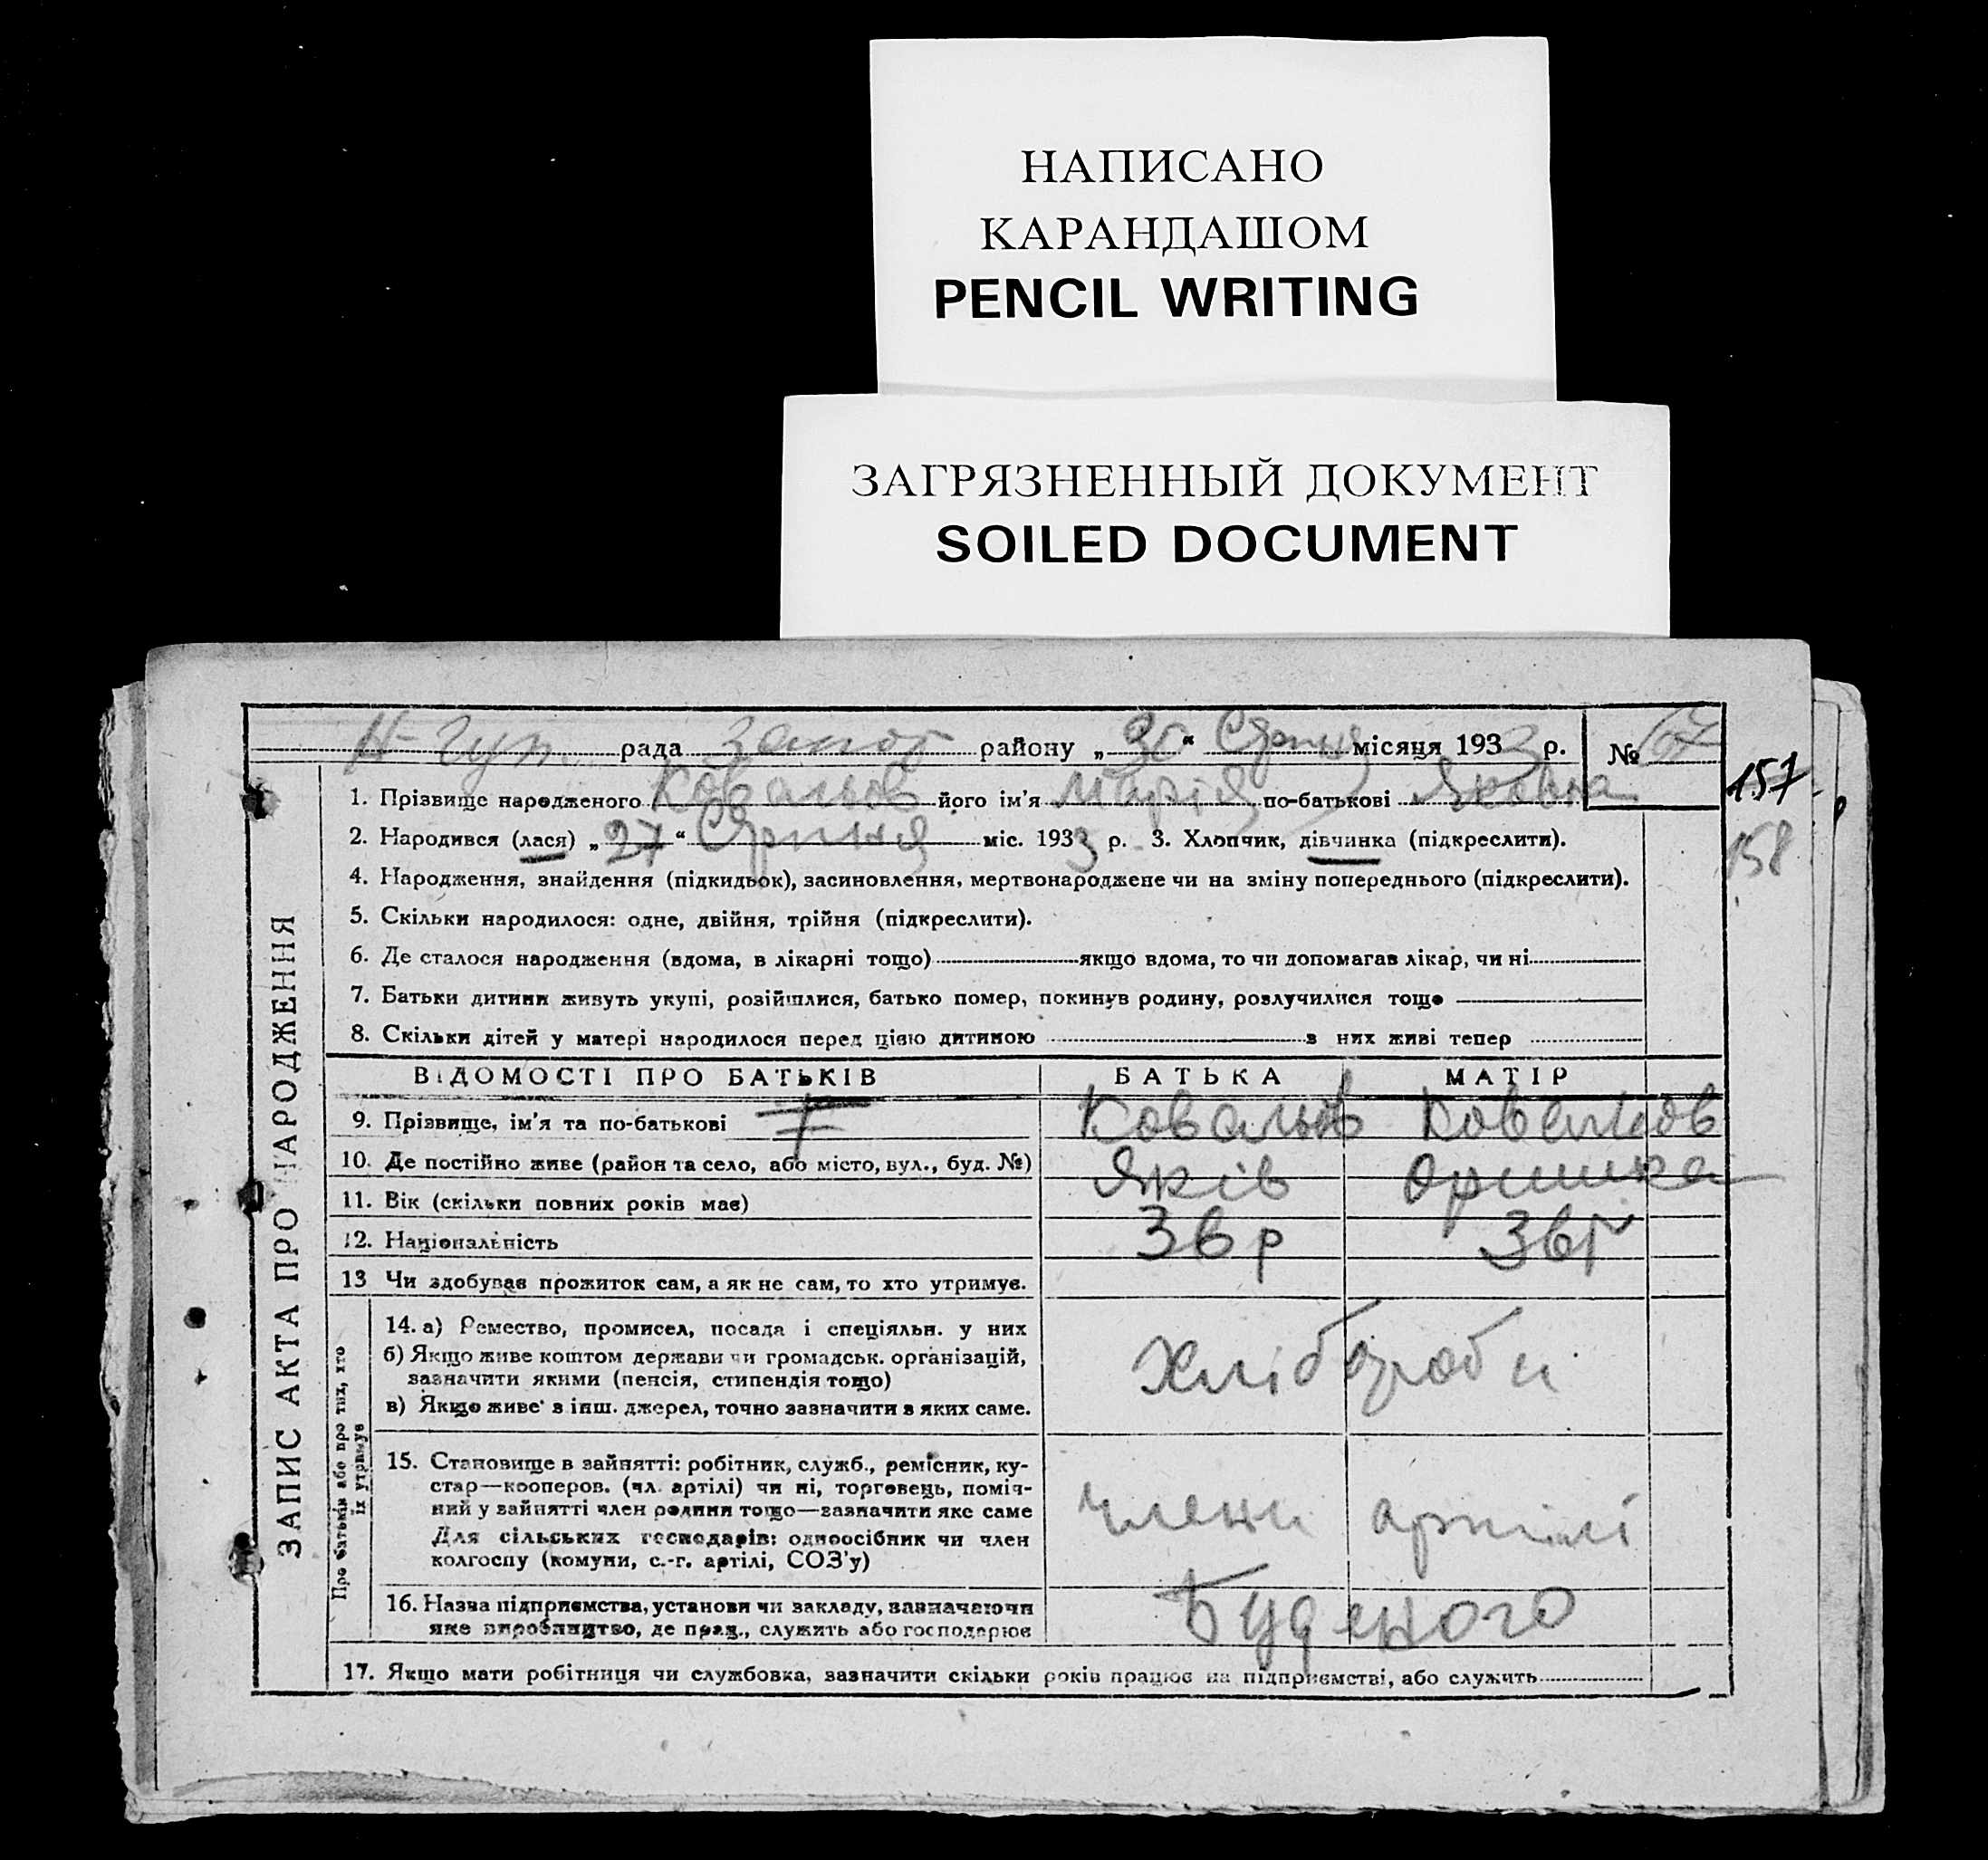 НАПИСАНО
КАРАНДАШОМ
PENCIL WRITING
ЗАГРЯЗНЕННЫЙ ДОКУМЕНТ
SOILED DOCUMENT
рада район у „30“ Серпня місяця 1933 р. № 67
157
158
1. Прізвище народженого Ковальов його ім'я Марія по-батькові Яковна
2. Народився (лася) „27“ Серпня міс. 1933 р. 3. Хлопчик, дівчинка (підкреслити).
4. Народження, знайдення (підкидьок), засиновлення, мертвонароджене чи на зміну попереднього (підкреслити).
5. Скільки народилося: одне, двійня, трійня (підкреслити).
6. Де сталося народження (вдома, в лікарні тощо) якщо вдома, то чи допомагав лікар, чи ні
7. Батьки дитини живуть укупі, розійшлися, батько помер, покинув родину, розлучилися тощо
8. Скільки дітей у матері народилося перед цією дитиною з них живі тепер
ЗАПИС АКТА ПРО НАРОДЖЕННЯ
ВІДОМОСТІ ПРО БАТЬКІВ БАТЬКА МАТІР
9. Прізвище, ім'я та по-батькові Ковальов Ковальов
10. Де постійно живе (район та село, або місто, вул., буд. №) Яків Оришка
11. Вік (скільки повних років має)
12. Національність
13 Чи здобуває прожиток сам, а як не сам, то хто утримує.
Про батьків або про тих, хто їх утримує
14. а) Ремество, промисел, посада і спеціяльн. у них
б) Якщо живе коштом держави чи громадськ. організацій,
зазначити якими (пенсія, стипендія тощо)
в) Якщо живе з інш. джерел, точно зазначити з яких саме.
Хлібороби
15. Становище в зайнятті: робітник, служб., ремісник, ку-
стар—кооперов. (чл. артілі) чи ні, торговець, поміч-
ний у зайнятті член родини тощо—зазначити яке саме
Для сільських господарів: одноосібник чи член
колгоспу (комуни, с.-г. артілі, СОЗ'у)
члени артілі
16. Назва підприємства, установи чи закладу, зазначаючи
яке виробництво, де прац., служить або господарює
Буденого
17. Якщо мати робітниця чи службовка, зазначити скільки років працює на підприємстві, або служить